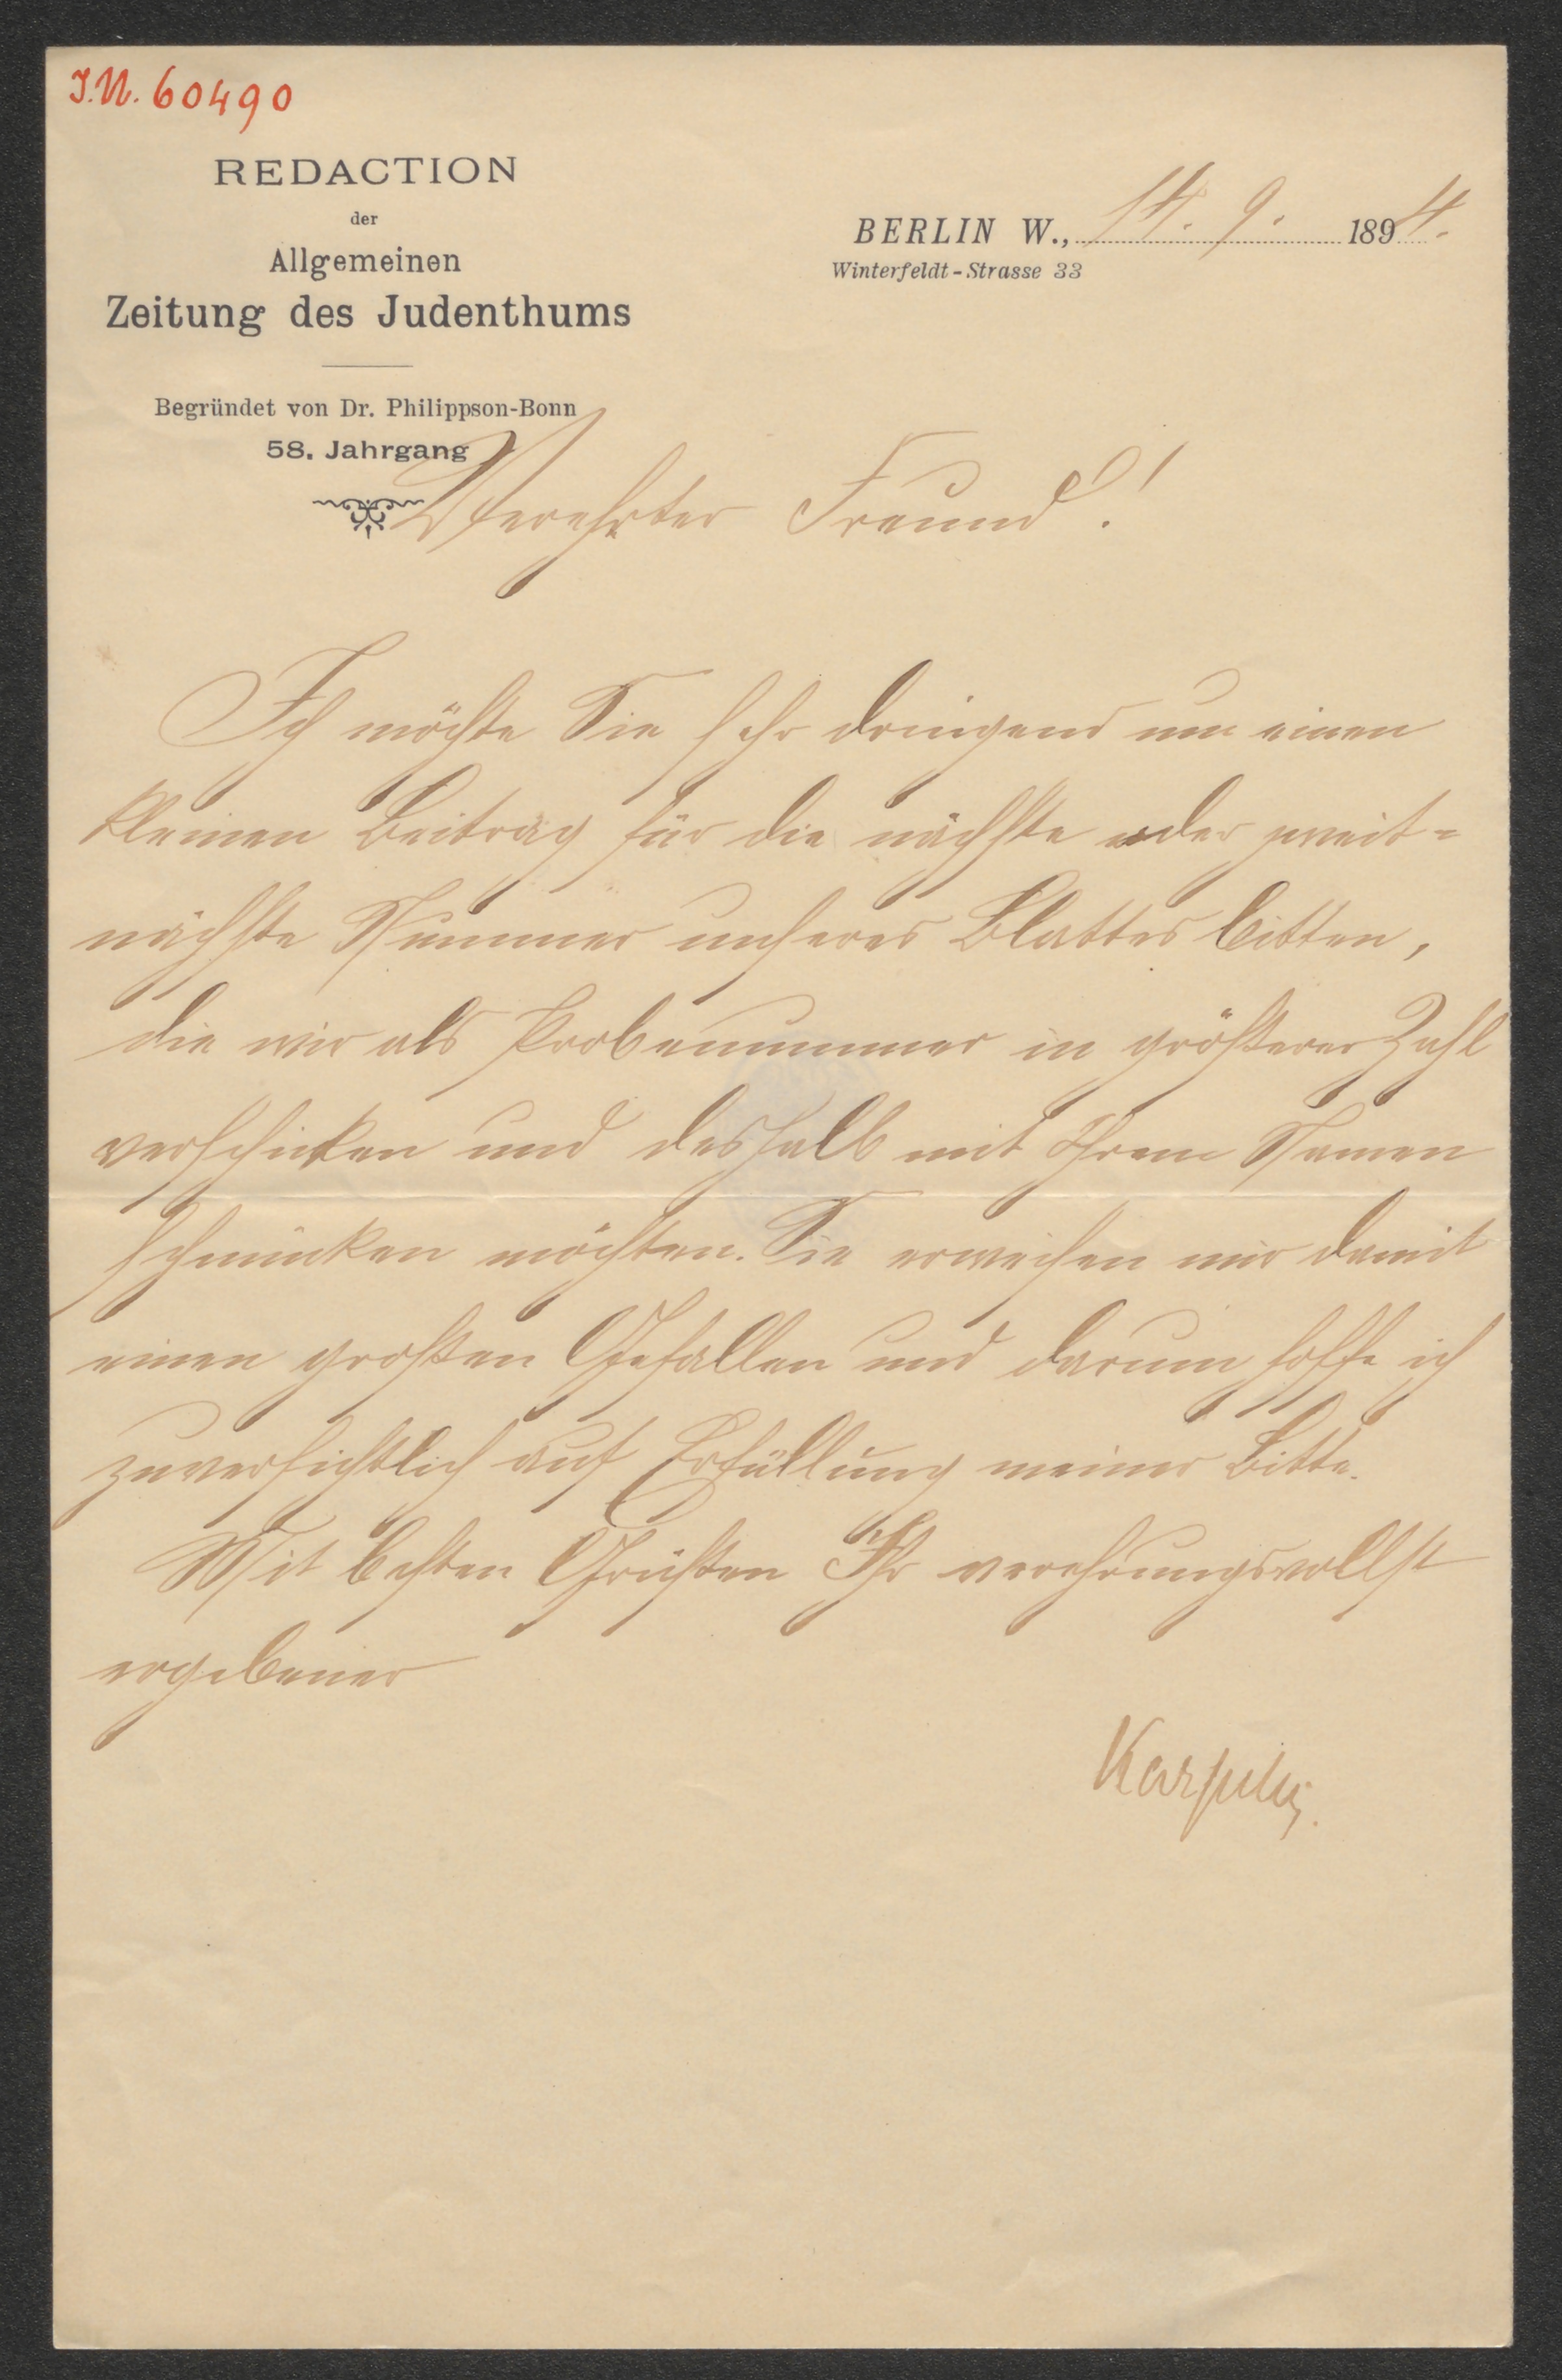 I.N. 60490
REDACTION
der
Allgemeinen
Zeitung des Judenthums
Begründet von Dr. Philippson-Bonn
58. Jahrgang
BERLIN W., 14. 9. 1894.
Winterfeldt-Strasse 33
Verehrter Freund!
Ich möchte Sie sehr dringend um einen
kleinen Beitrag für die nächste oder zweit=
nächste Nummer unseres Blattes bitten,
die wir als Probenummer in größerer Zahl
verschicken und deshalb mit Ihrem Namen
schmücken möchten. Sie erweisen mir damit
einen großen Gefallen und darum hoffe ich
zuversichtlich auf Erfüllung meiner Bitte.
Mit besten Grüßen Ihr verehrungsvollst
ergebener
Karpeles.